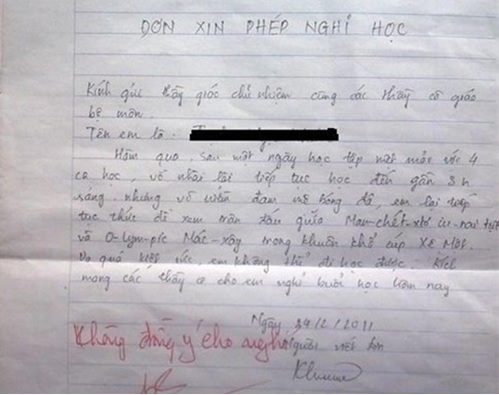 ĐƠN XIN PHÉP NGHỈ HỌC
Kính gửi thầy giáo chủ nhiệm cùng các thầy cô giáo
bộ môn.
Tên em là:
Hôm qua, sau một ngày học tập mệt mỏi với 4
ca học, về nhà lại tiếp tục học đến gần 3h
sáng. nhưng vì niềm đam mê bóng đá, em lại tiếp
tục thức để xem trận đấu giữa Man-chét-xtơ iu-nai-tựt
và O-lym-pic Mác-xây trong khuôn khổ cúp Xê Một.
Do quá kiệt sức, em không thể đi học được. Kính
mong các thầy cô cho em nghỉ buổi học hôm nay
Ngày 24/2/2011
Người viết đơn
Không đồng ý cho nghỉ